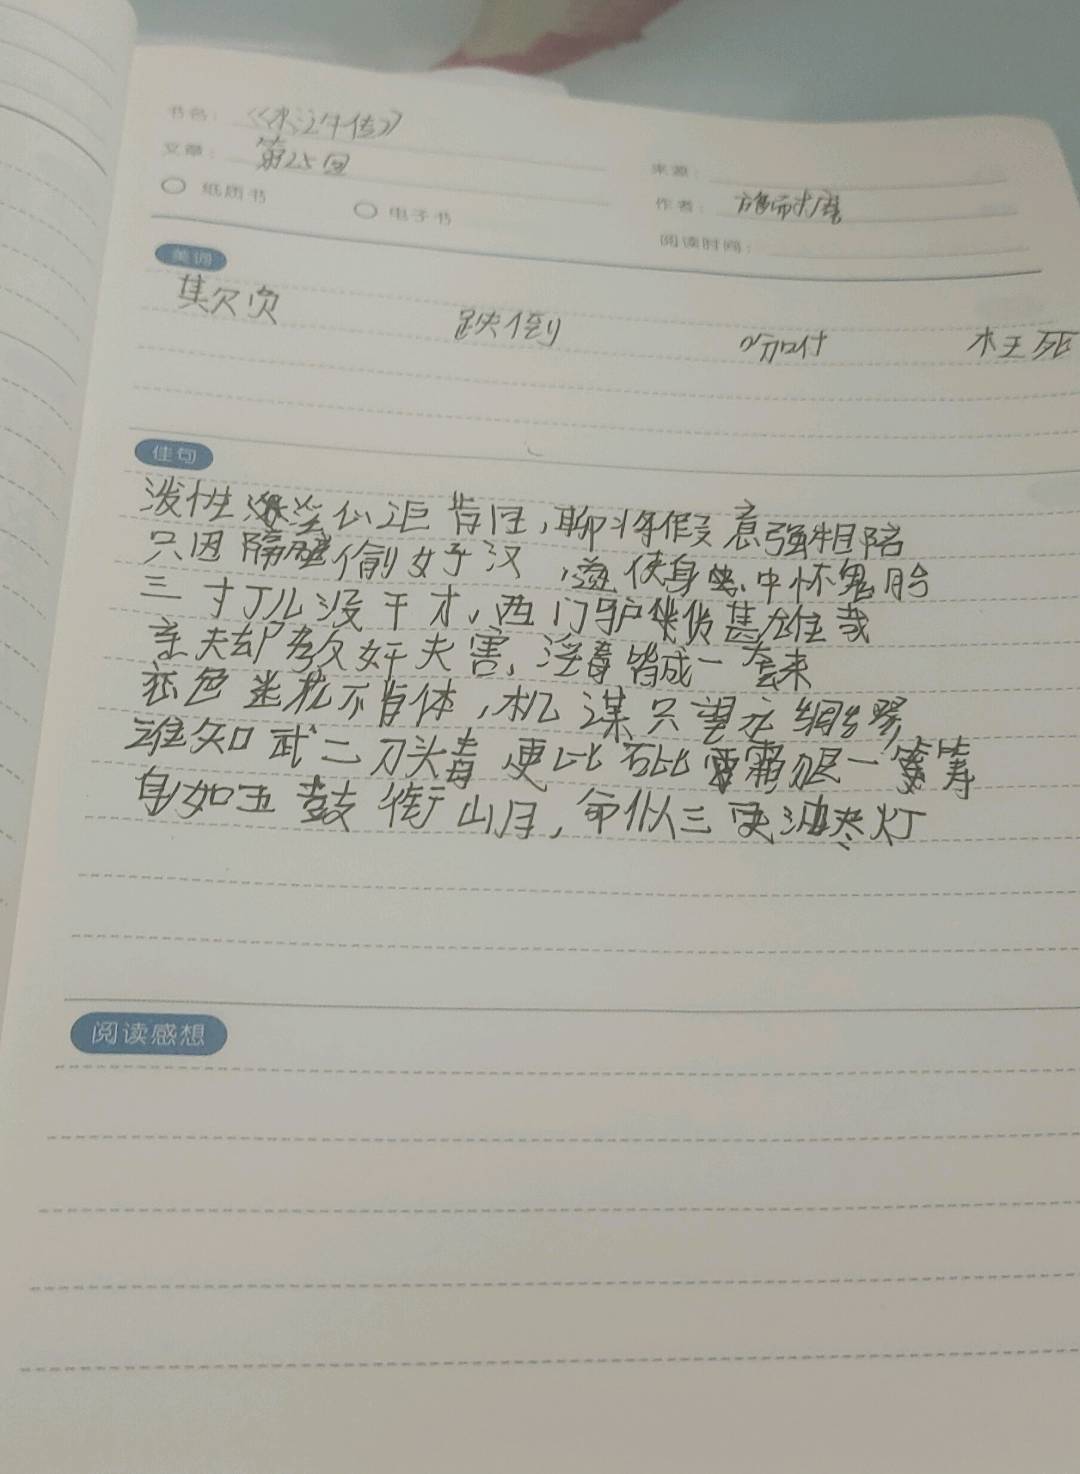 书名：《水浒传》
文章：第25回
来源：
纸质书 电子书
作者：施耐庵
阅读时间：
美词
欺负 跌倒 吩咐 枉死
佳句
泼性 淫心 讵肯回，聊将假意强相陪
只因隔壁偷好汉，遂使身中怀鬼胎
三寸丁儿没干才，西门驴货甚雄哉
亲夫却教奸夫害，淫毒皆成一套来
恋色迷花不肯休，机谋只望永绸缪
谁知武二刀头毒，更比砒霜狠一筹
身如五鼓衔山月，命似三更油尽灯
阅读感想